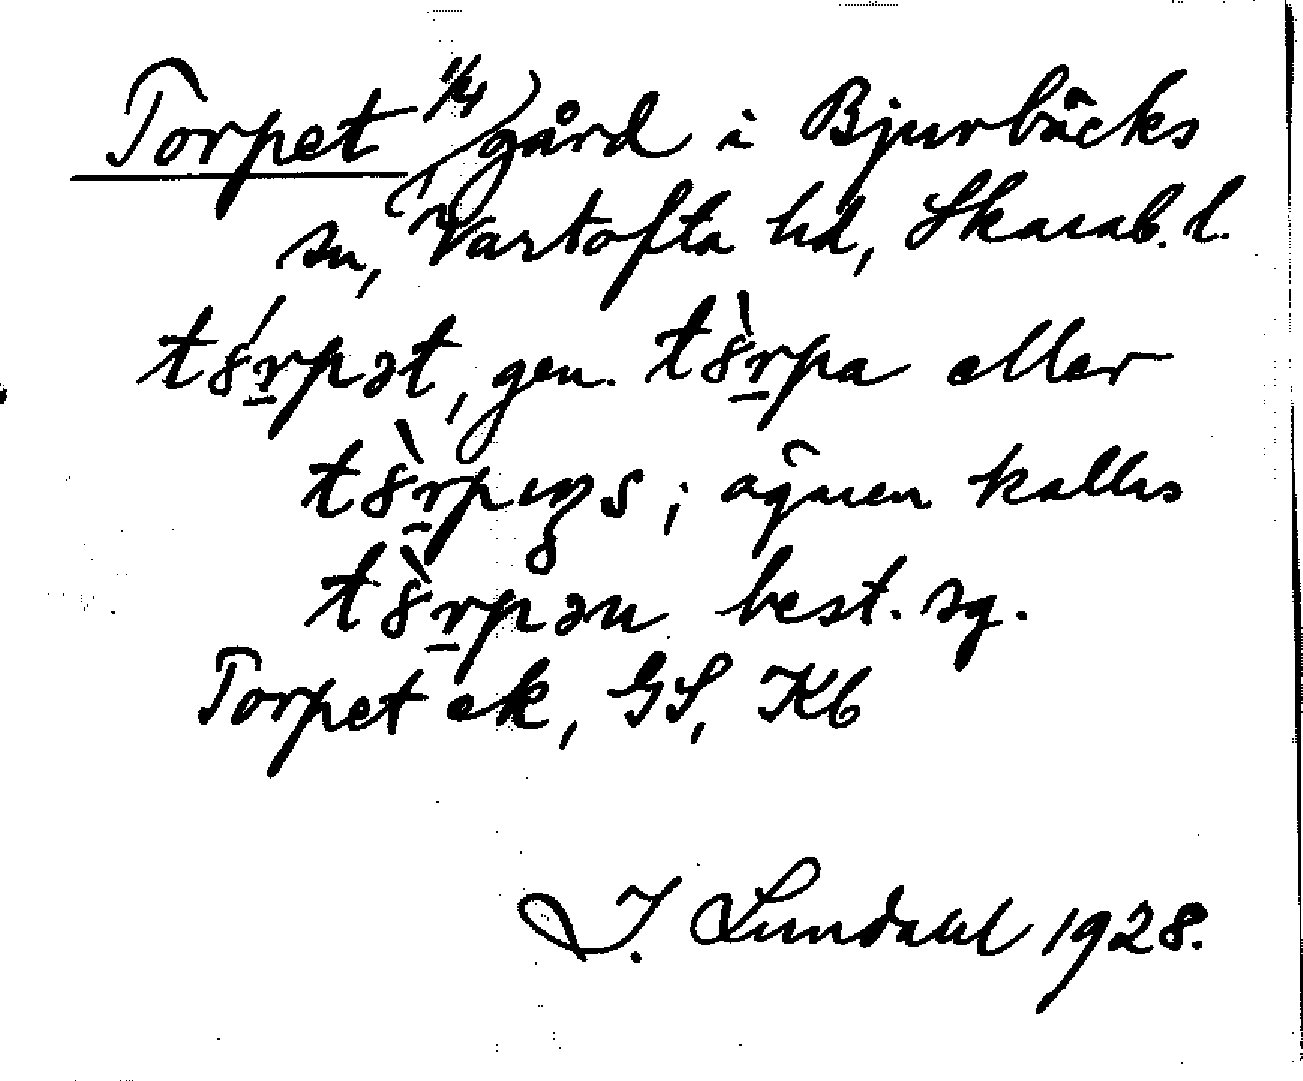 Torpet 1/4 gård i Bjurbäcks
sn, Vartofta hd, Skarab. l.
tórpət, gen. tòrpa eller
tòrpɩŋs; ägnen kallas
tòrpən best. sg.
Torpet ek, GS, Kb
I. Lundahl 1928.